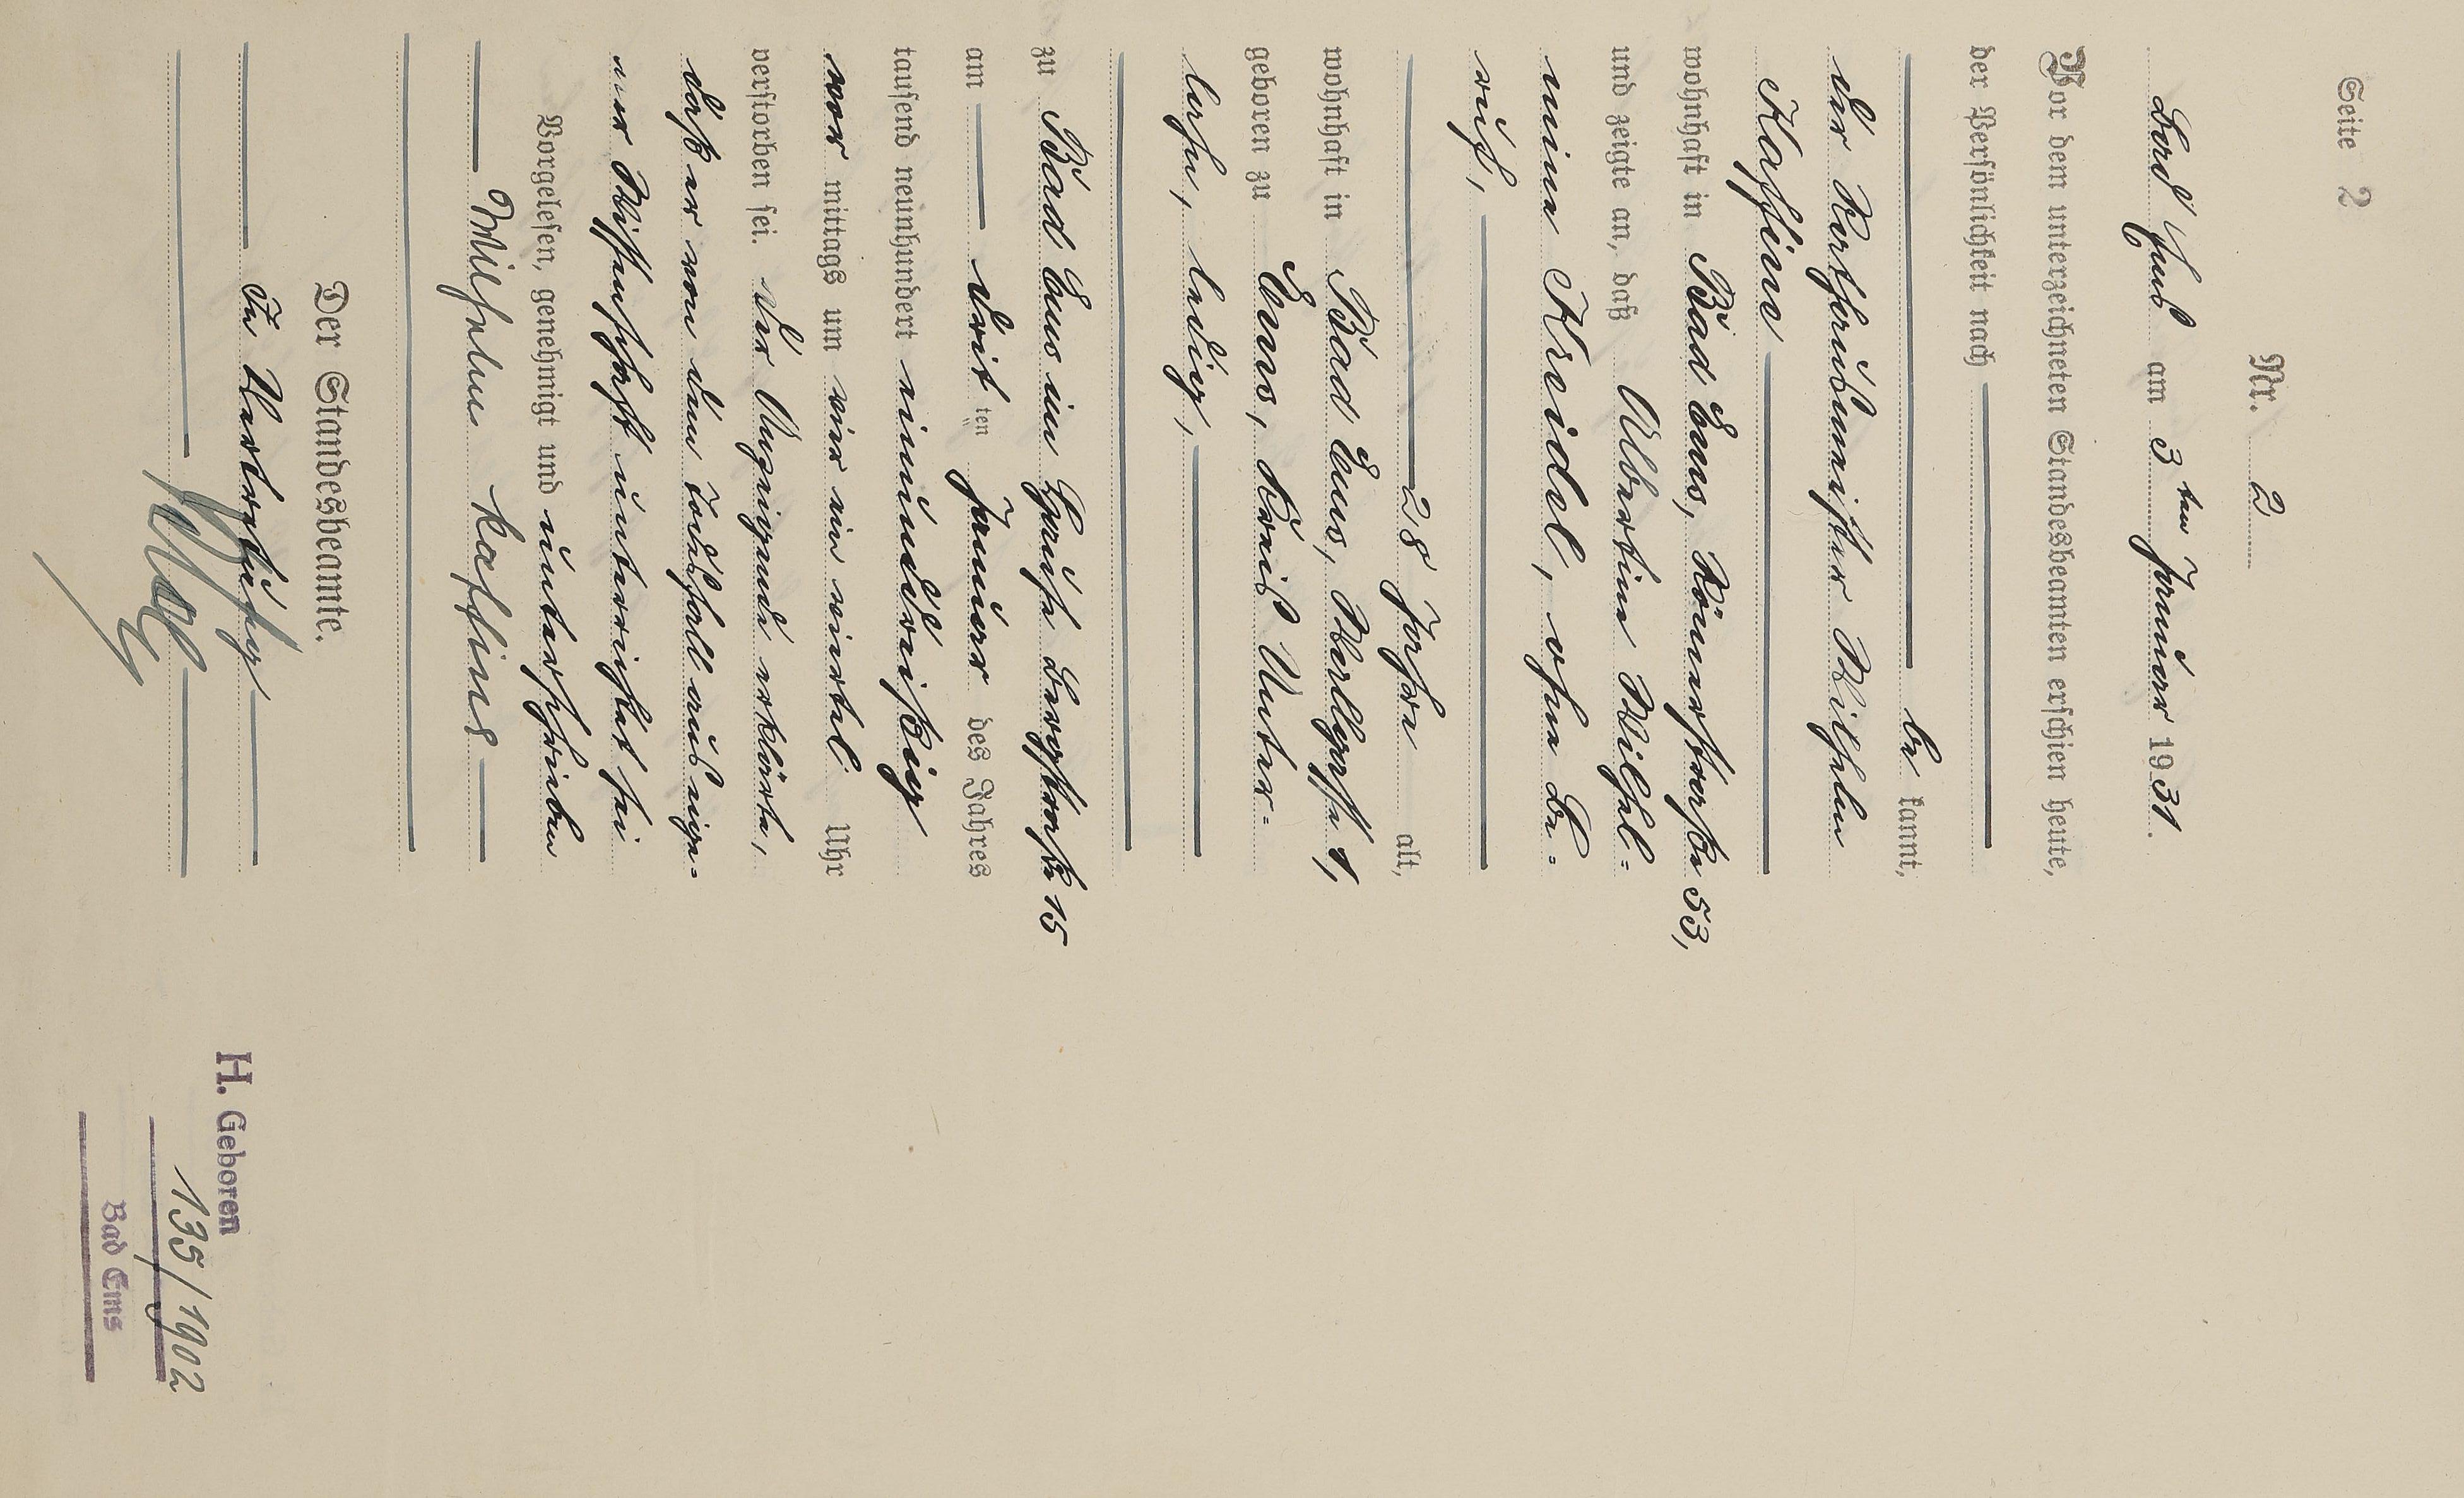 Seite 2
Nr. 2
Bad Ems am 3ten Januar 1931.
Vor dem unterzeichneten Standesbeamten erschien heute,
der Persönlichkeit nach
be kannt,
der Wilhelm
Kaffine
wohnhaft in Bad Ems, Römerstraße 53,
und zeigte an, daß Albertine Wilhel-
mine Kreidel, ohne Be-
ruf,
28 Jahre alt,
wohnhaft in Bad Ems, 1,
geboren zu Ems, Kreis Unter-
lahn, ledig,
zu Bad Ems im Hause Bergstraße 15
am dritten Januar des Jahres
tausend neunhundert einunddreißig
vor mittags um vier ein viertel Uhr
verstorben sei. Der Anzeigende erklärte,
daß er von dem Todesfall aus eige-
ner Wissenschaft unterrichtet sei
Vorgelesen, genehmigt und unterschrieben
Wilhelm Kaffine
Der Standesbeamte.
In Vertretung
H. Geboren
135/1902
Bad Ems